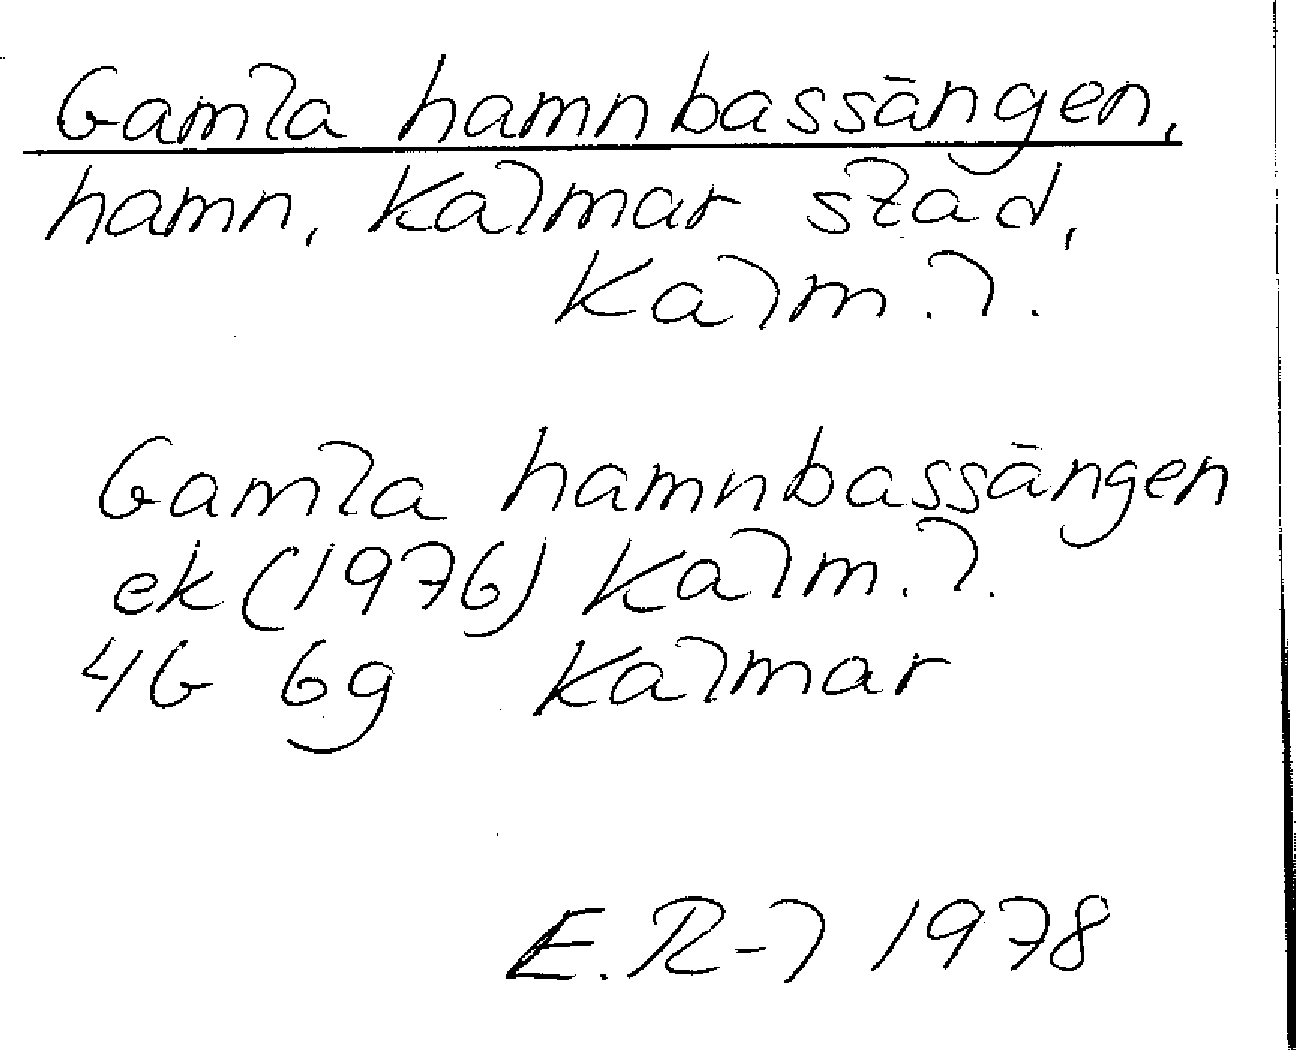 Gamla hamnbassängen,
hamn, Kalmar stad,
Kalm. l.
Gamla hamnbassängen
ek (1976) Kalm. l.
4G 6g Kalmar
E. R-l 1978